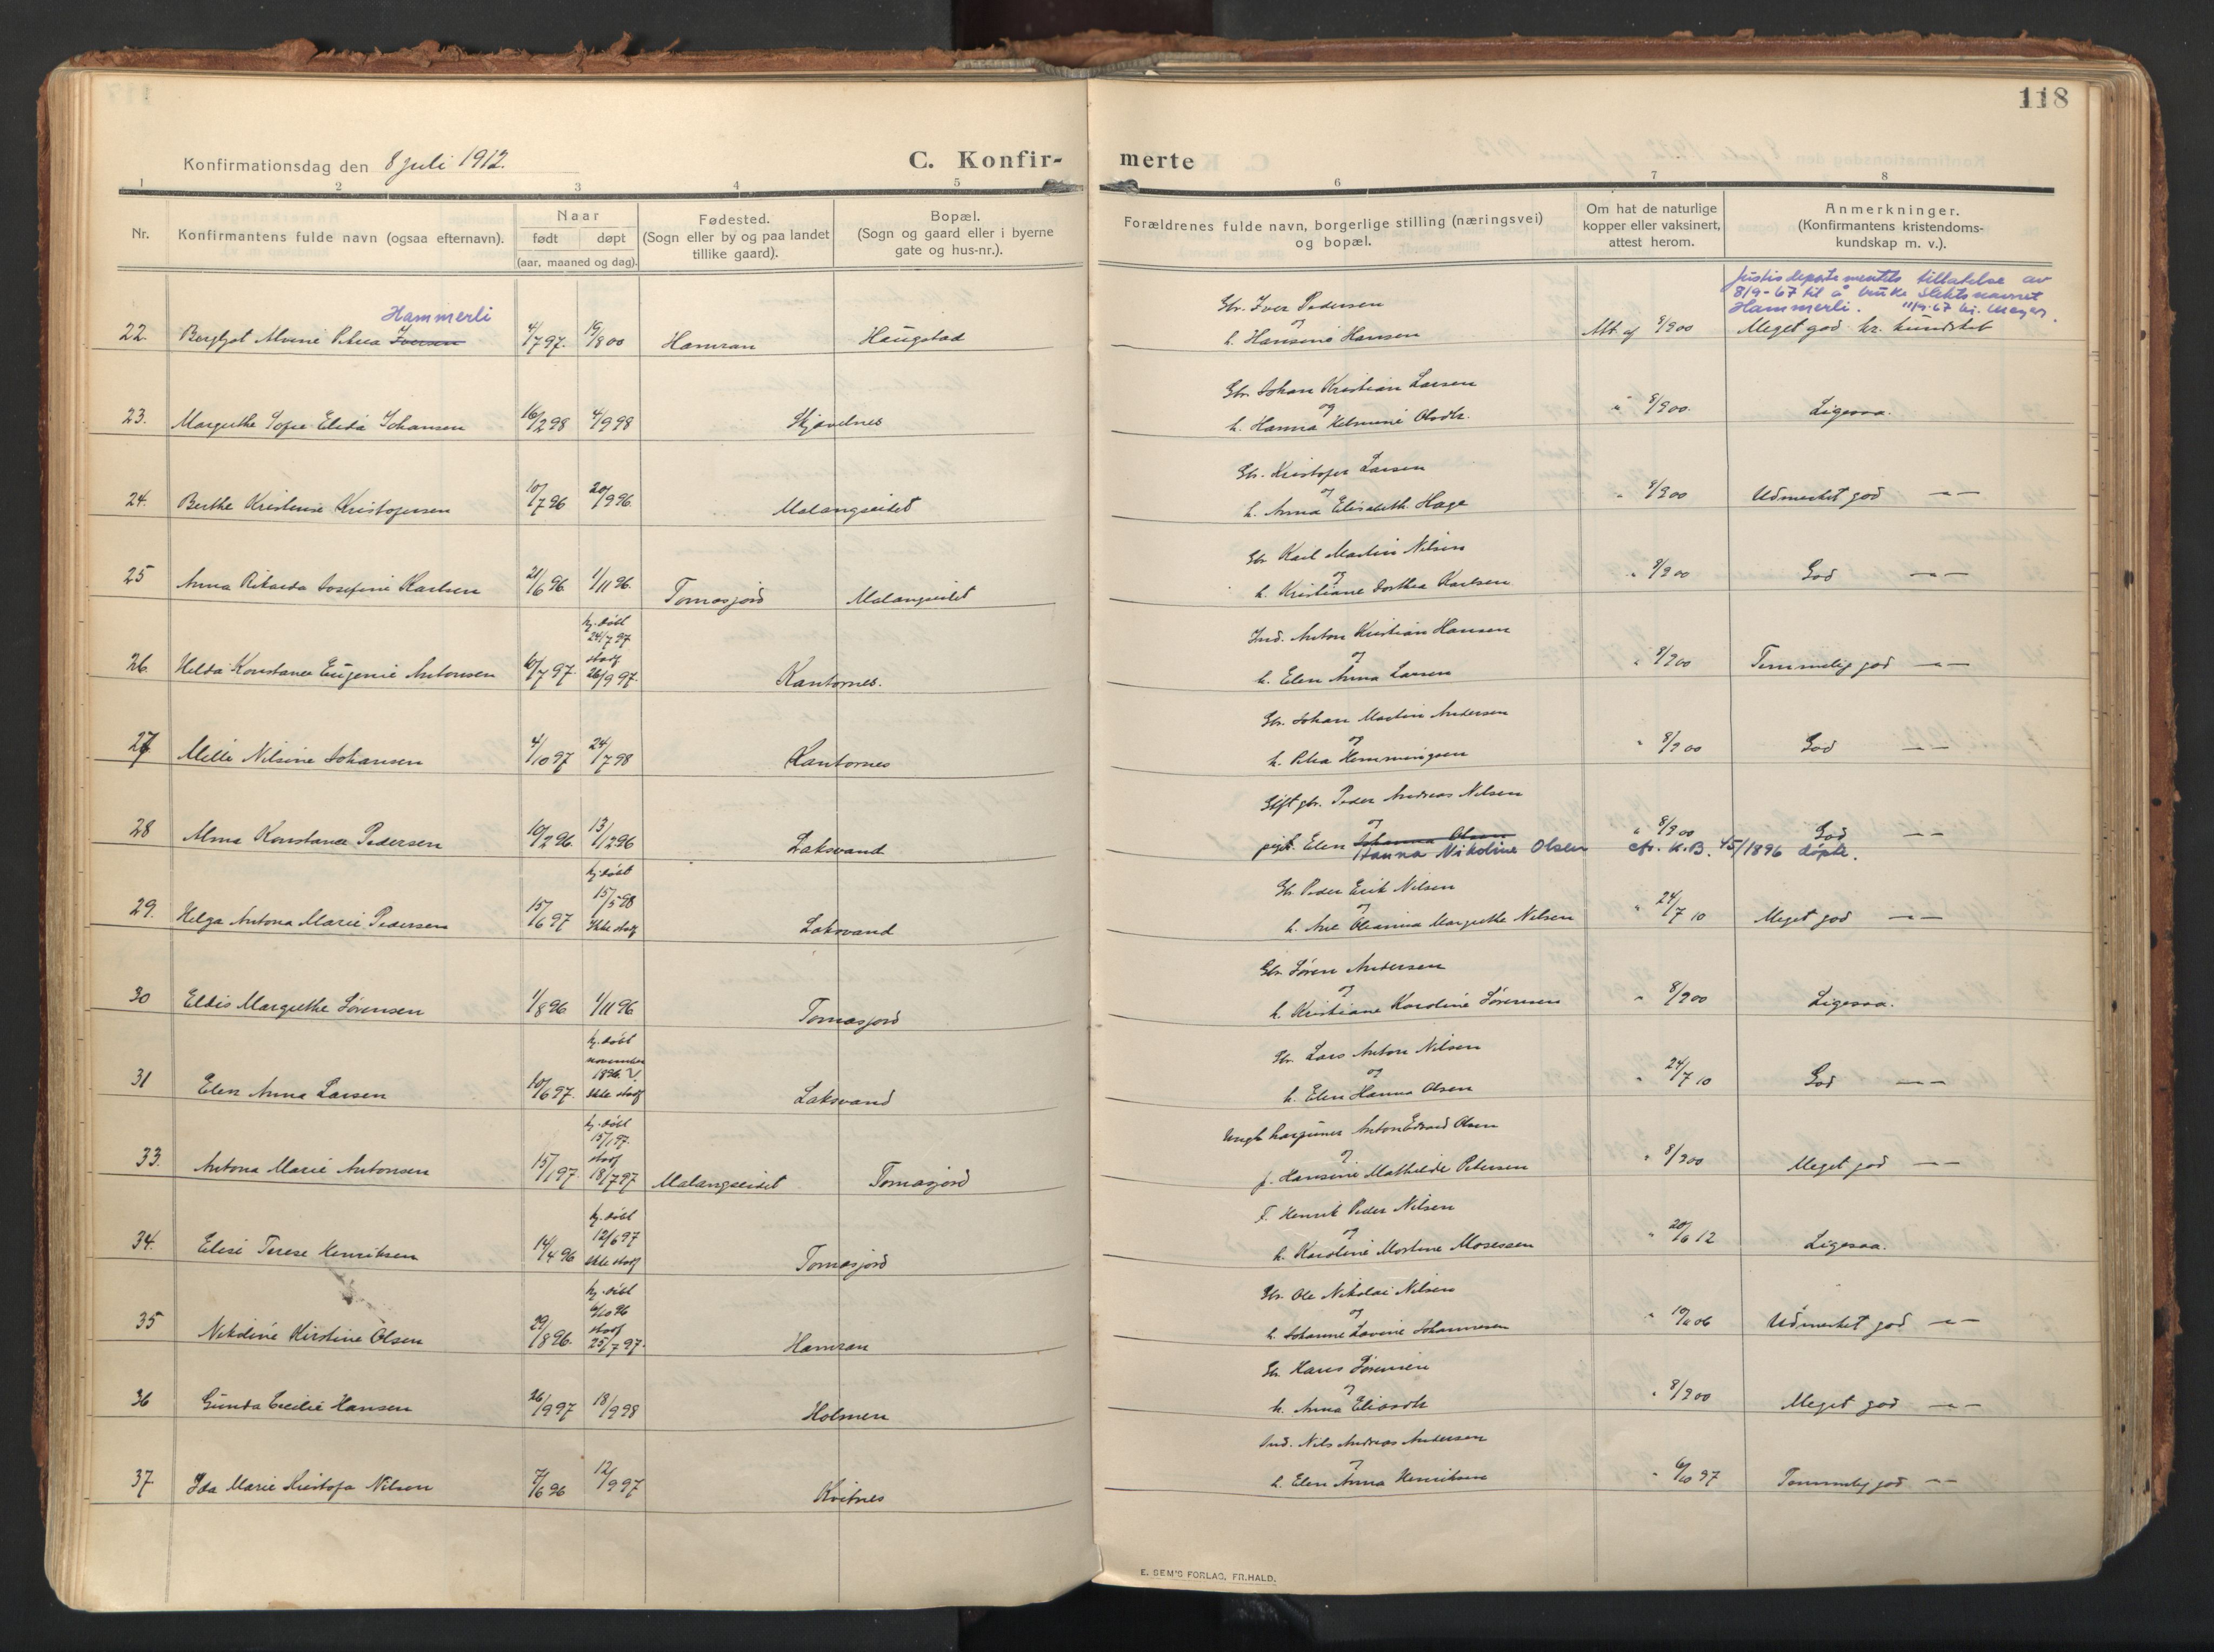 118
Konfirmationsdag den 8 juli 1912.
C. Konfir- merte
1 2 3 4 5 6 7 8
Nr.
Konfirmantens fulde navn (ogsaa efternavn).
Naar
født døpt
(aar, maaned og dag).
Fødested.
(Sogn eller by og paa landet
tillike gaard).
Bopæl.
(Sogn og gaard eller i byerne
gate og hus-nr.).
Forældrenes fulde navn, borgerlige stilling (næringsvei)
og bopæl.
Om hat de naturlige
kopper eller vaksinert,
attest herom.
Anmerkninger.
(Konfirmantens kristendoms-
kundskap m. v.).
Justisdepartementets tillatelse av
8/9-67 til å bruke slektsnavnet
Hammerli. 11/9-67 kj. Meyer.
Hammerli
Gbr. Iver Pedersen
og
22. Bergljot Alvine Petrea Iversen 4/7 97. 19/8 00 Hamran Haugstad h. Hansine Hansen Att. af 8/9 00 Meget god kr. kundskab
Gbr. Johan Kristian Larsen
og
23. Margrethe Sofie Elida Johansen 16/2 98 4/9 98 Skjævelnes h. Hanna Helmine Olsdtr. " 8/9 00. Ligesaa.
Gbr. Kristofer Larsen
og
24. Berthe Kristense Kristofersen 10/7 96 20/9 96. Malangseidet h. Anna Elisabeth Hage " 8/9 00 Udmerket god — " —
Gbr. Karl Martin Nilsen
og
25 Anna Rikarda Josefine Karlsen 21/6 96 1/11 96. Tomasjord Malangseidet h. Kristiane Dorthea Karlsen " 8/9 00 God — " —
hj. døbt
24/7 97
stadf
Ind. Anton Kristian Hansen
og
26. Helda Konstance Eugenie Antonsen 10/7 97. 26/9 97. Kantornes. h. Elen Anna Larsen " 8/9 00 Temmelig god — " —
Gbr. Johan Martin Andersen
og
27 Milli Nilsine Johansen 4/10 97 24/7 98 Kantornes h. Petra Hemmingsen " 8/9 00 God — " —
Gift gbr. Peder Andreas Nilsen
og
28 Alma Konstance Pedersen 10/2 96. 13/12 96 Laksvand pige. Elen Johanna Olsen " 8/9 00 God — " —
Hanna Nikoline Olsen cfr. K.B. 45/1896 døpte.
hj. døbt
15/5 98
Ikke stadf
Gbr. Peder Erik Nilsen
og
29. Helga Antona Marie Pedersen 15/6 97 Laksvand h. Ane Oleanna Margrethe Nilsen " 24/7 10 Meget god — " —
Gbr. Søren Andersen
og
30 Eldis Margrethe Sørensen 1/8 96 1/11 96 Tomasjord h. Kristiane Karoline Sørensen " 8/9 00 Ligesaa.
hj. døbt
november
1896. ?
Ikke stadf
Gbr. Lars Anton Nilsen
og
31 Elen Anna Larsen 10/6 97. Laksvand h. Elen Hanna Olsen " 24/7 10 God — " —
hj. døbt
15/1 97.
stadf
Ungk. harpuner Anton Edvard Olsen
og
33. Antona Marie Antonsen 15/1 97 18/7 97 Malangseidet Tomasjord p. Hansine Mathilde Petersen " 8/9 00 Meget god — " —
hj. døbt
12/6 97
Ikke stadf
F. Henrik Peder Nilsen
og
34. Elise Terese Henriksen 14/4 96 Tomasjord h. Karoline Mortine Mosessen " 20/6 12 Ligesaa.
hj. døbt
6/10 96
stadf
Gbr. Ole Nikolai Nilsen
og
35 Nikoline Kirstine Olsen 29/8 96. 25/7 97. Hamran h. Johanne Lavine Johannesen " 06 Udmerket god — " —
Gbr. Hans Sørensen
og
36 Gunda Cecilie Hansen 26/9 97 18/9 98 Holmen h. Anna Eliasdtr. " 8/9 00 Meget god — " —
Ind. Nils Andreas Andersen
og
37. Ida Marie Kristofa Nilsen 7/6 96 12/9 97 Kvitnes h. Elen Anna Henriksen " 6/10 97 Temmelig god — " —
E. SEM'S FORLAG, FR.HALD.